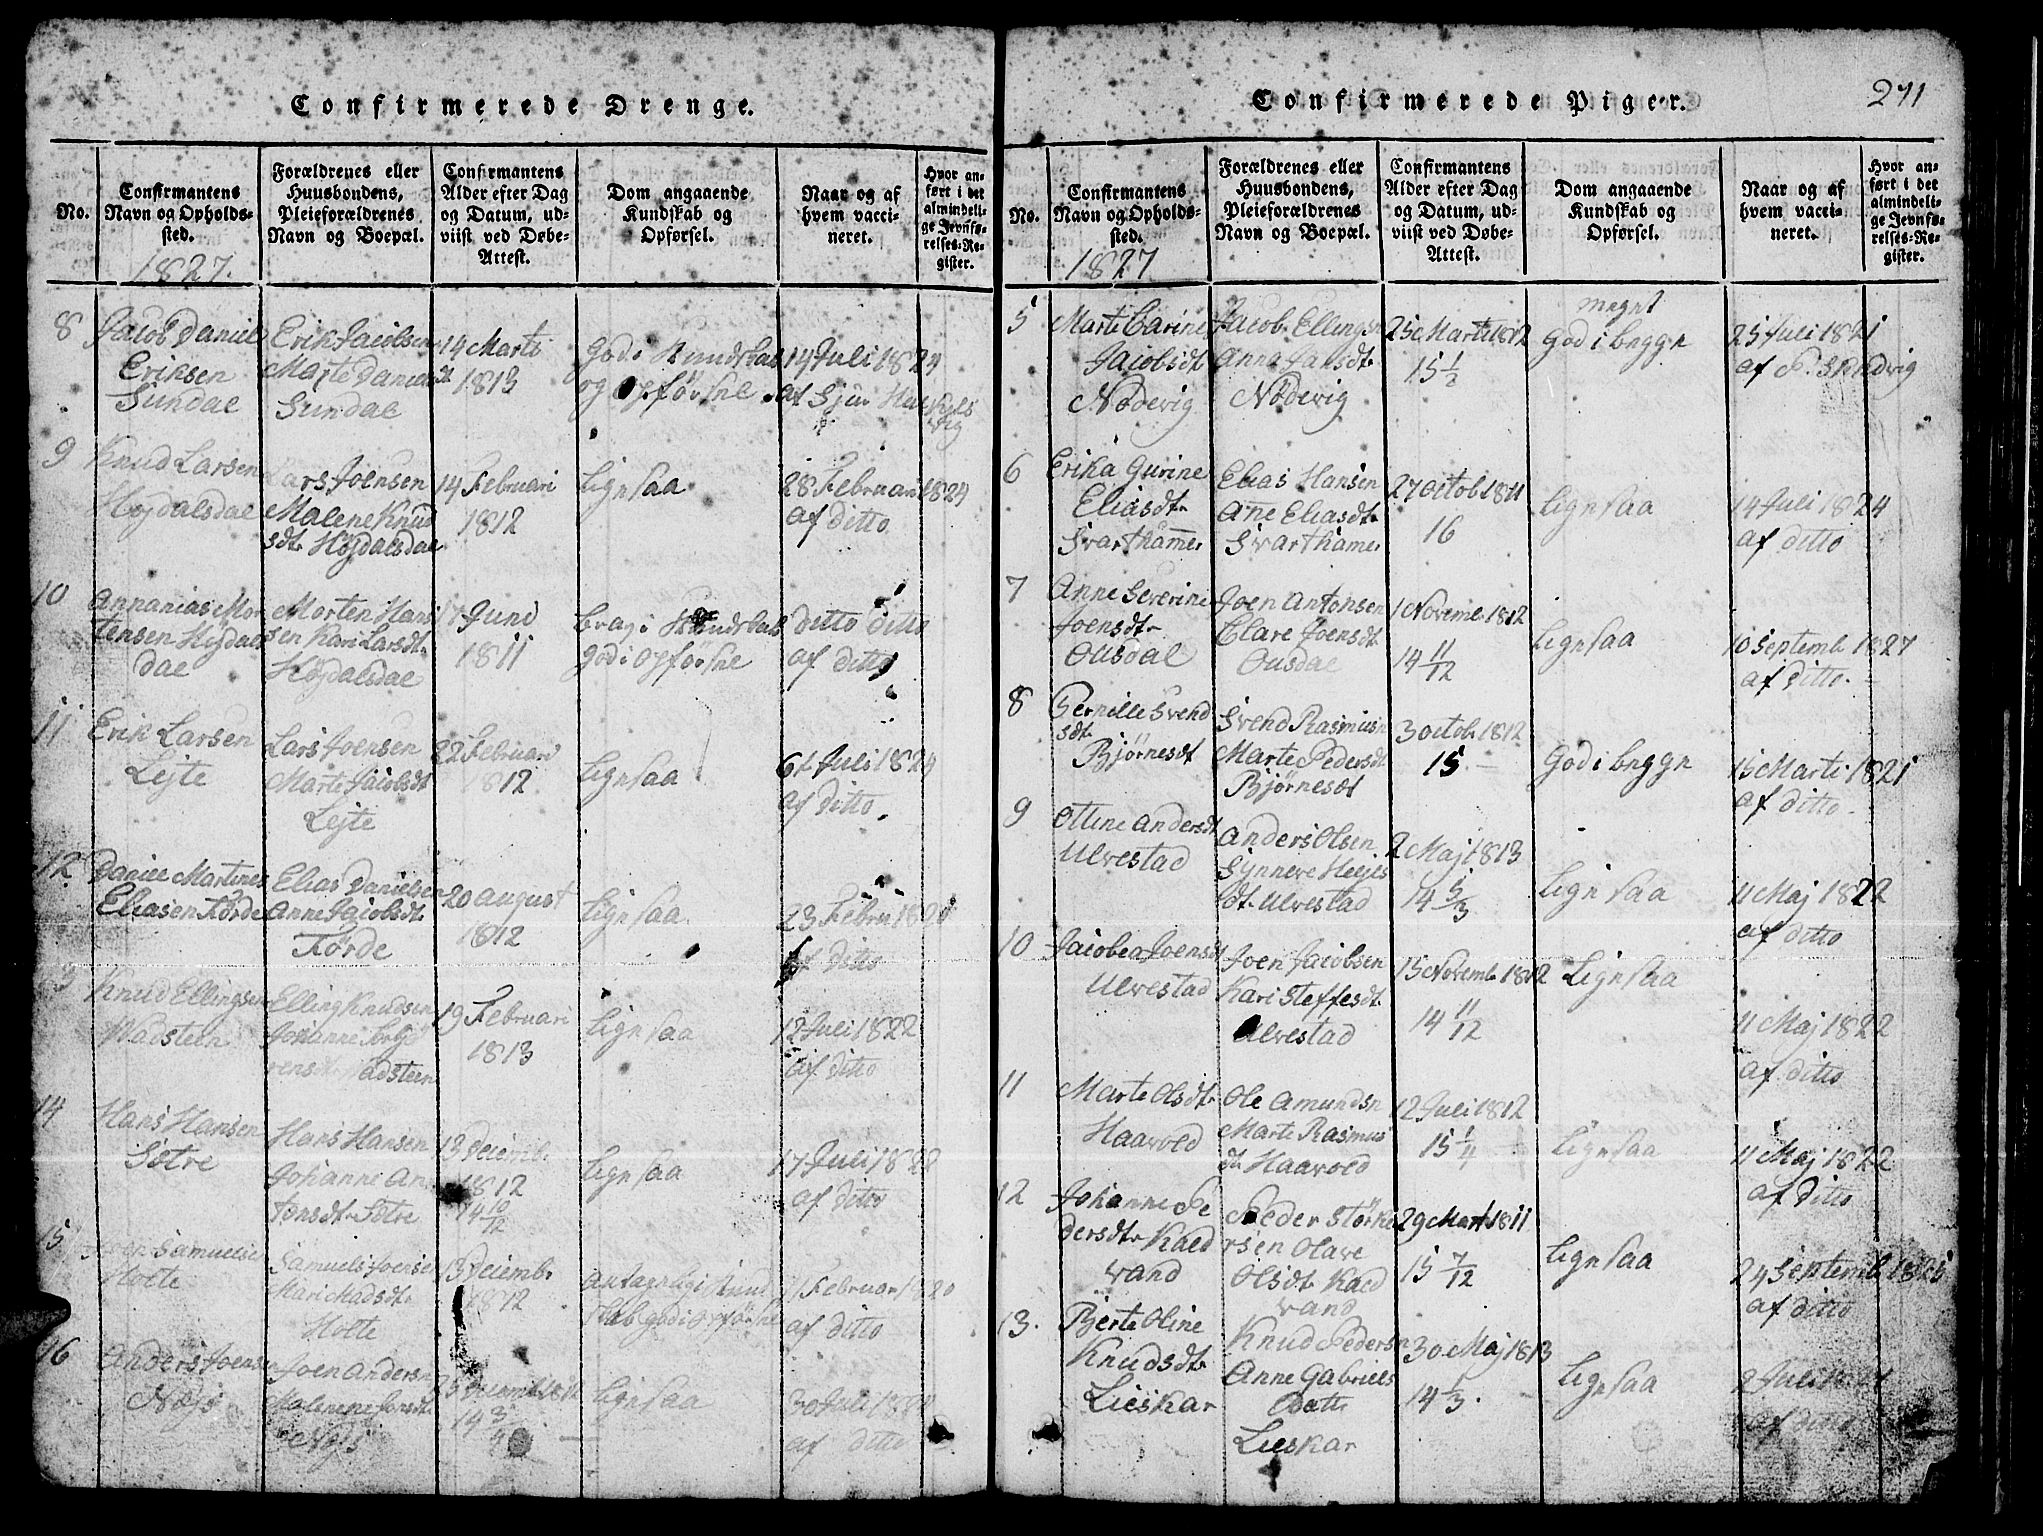 Confirmerede Drenge.
No.
Confirmantens
Navn og Opholds-
sted.
1827.
Forældrenes eller
Huusbondens,
Pleieforældrenes
Navn og Boepæl.
Confirmantens
Alder efter Dag
og Datum, ud-
viist ved Døbe-
Attest.
Dom angaaende
Kundskab og
Opførsel.
Naar og af
hvem vacci-
neret.
Hvor an-
ført i det
almindeli-
ge Jevnfø-
relses-Re-
gister.
8
Jacob Daniel
Eriksen
Sundal
Erik Jacobsen
Marte Daniels
dt
Sundal
14 Marti
1813
God i Kundskab
og Opførsel
14 Juli 1824
af Sjur
9
Knud Larsen
Højdalsdal
Lars Joensen
Malene Knud
sdt. Højdalsdal
14 Februari
1812
Ligesaa
28 Februari 1824
af ditto
10
Annanias Mor
tensen Højdals
dal
Morten Hans
sen Kari Larsdt.
Højdalsdal
17 Juni
1811
brav i Kundskab
God i Opførsel
ditto ditto
af ditto
11
Erik Larsen
Lejte
Lars Joensen
Marte Jacobsdt
Lejte
22 Februari
1812
Ligesaa
Juli 1824
af ditto.
12
Daniel Martines
Eliasen Førde
Elias Danielsen
Anne Jacobsdt.
Førde
20 August
1812
Ligesaa
23 Febru 1820
af ditto
3
Knud Ellingsen
Vadsteen
Elling Knudsen
Johanne
adsteen
19 Februari
1813
Ligesaa
12 Juli 1822
af ditto
14
Hans Hansen
Sætre
Hans Hansen
Johanne An
tonsdt. Sætre
13 Decembr
1812
14 10/12
Ligesaa
17 Juli 1822
af ditto
15
Samuelse
Holte
Samuel Joensen
Mari Madsdt.
Holte
13 Decembr
1812
Antagelig i Kund
skab God i Opførsel
Februar 1820
af ditto
16
Anders Joensen
Nøjs
Joen Andersn
Malene Jonsdt.
Nøjs
14 3/4
Ligesaa
30 Juli
af ditto
Confirmerede Piger.
271
No.
Confirmantens
Navn og Opholds-
sted.
1827
Forældrenes eller
Huusbondens,
Pleieforældrenes
Navn og Boepæl.
Confirmantens
Alder efter Dag
og Datum, ud-
viist ved Døbe-
Attest.
Dom angaaende
Kundskab og
Opførsel.
Naar og af
hvem vacci-
neret.
Hvor an-
ført i det
almindeli-
ge Jevnfø-
relses-Re-
gister.
5
Marte Carine
Jacobsdt
Nødevig
Jacob Ellingsn
Anna Jansdt.
Nødevig
25 Marti 1812
15 1/2
meget
God i begge
25 Juli 1821
af P.
6
Erika Gurine
Eliasdt.
Svarthamer
Elias Hansen
Ane Eliasdt.
Svarthamer
27 Octob 1811
16
Ligesaa
14 Juli 1824
af ditto
7
Anne Severine
Joensdt.
Ousdal
Joen Antonsen
Clare Joensdt
Ousdal
1 Novemb. 1812
14 11/12
Ligesaa
10 Septemb. 1827
af ditto.
8
Pernille Svend
sdt.
Bjørnesdt
Svend Rasmusn
Marte Pedersdt
Bjørnesdt
3 Octob. 1812
15
God i begge
15 Marti 1821
af ditto
9
Oline Andersdt
Ulvestad
Anders Olsen
Synneve
dt. Ulvestad
2 Maj 1813
14
Ligesaa
11 Maj 1822
af ditto
10
Jacobea Joensdt
Ulvestad
Joen Jacobsen
Kari Steffesdt.
Ulvestad
15 Novemb. 1812
14 11/12
Ligesaa
11 Maj 1822
af ditto
11
Marte Olsdt.
Haavold
Ole Amundsn
Marte Rasmus
dt. Haavold
12 Juli 1812
15 1/4
Ligesaa
11 Maj 1822
af ditto
12
Johanne Pe
dersdt. Kald
vand
Peder Størke
rsen Olave
Olsdt. Kald
vand
29 Mart 1811
15 7/12
Ligesaa
24 Septemb.
af ditto
13.
Berte Oline
Knudsdt.
Lieskar
Knud Pedersn
Anne Gabriels
Datt.
Lieskar
30 Maj 1813
14 1/3.
Ligesaa
2 Juli
af ditto